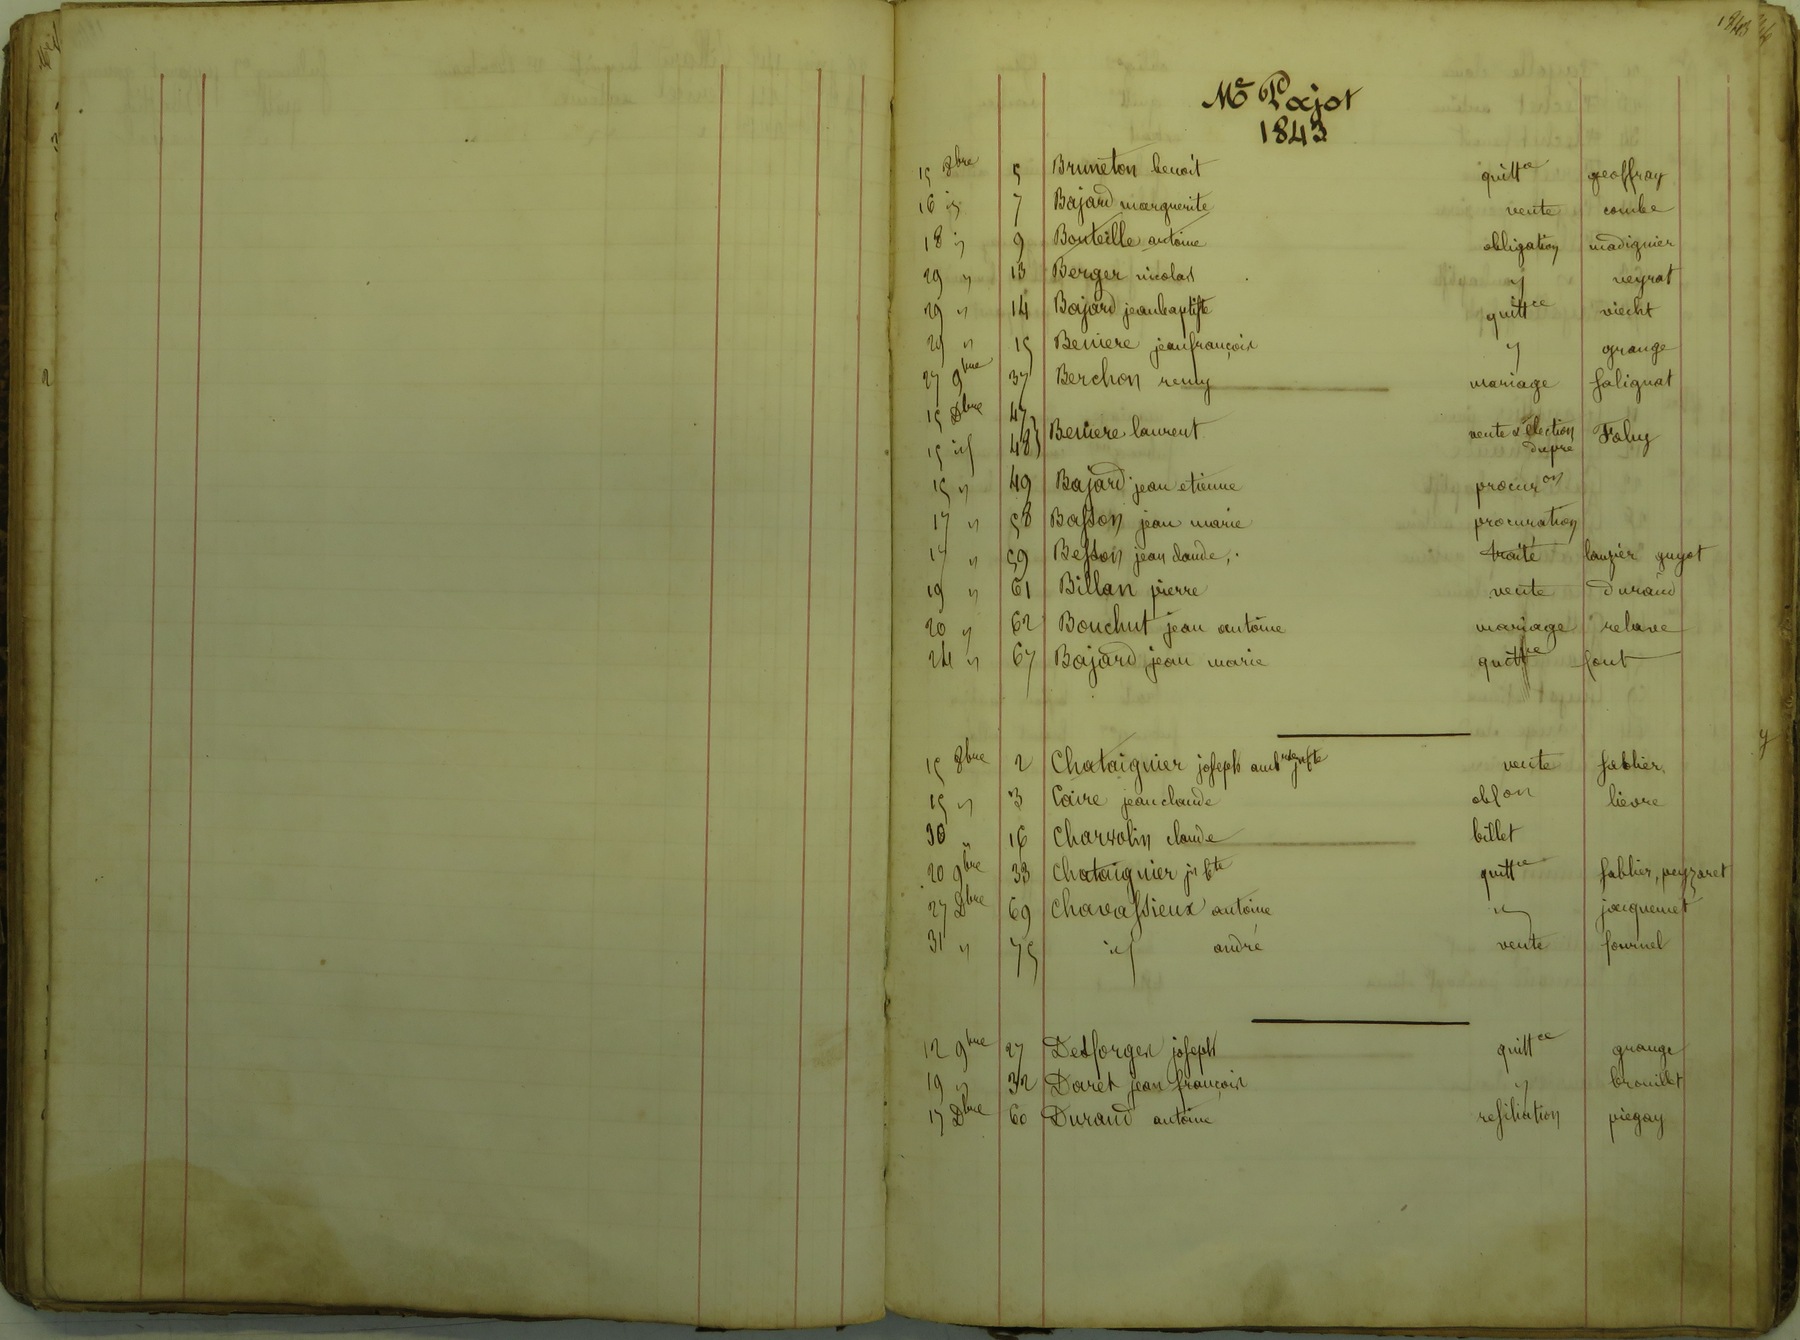 1843
Me Pajot
1843
15 8bre 5 Bruneton benoit quittce geoffray
16 id 7 Bajard marguerite vente combe
18 id 9 Bouteille antoine obligation madignier
29 " 13 Berger nicolas " neyrat
29 " 14 Bajard jeanbaptiste quittce viecht
29 " 15 Beniere jeanfrançois " grange
27 9bre 37 Berchon remy mariage salignat
15 Dbre 47
15 id 48 } Beniere laurent vente & election dupre Fahy
15 " 49 Bajard jean etienne procuron
17 " 58 Basson jean marie procuration
17 " 59 Besson jean claude traité lauzier guyot
19 " 61 Billan pierre vente durand
20 " 62 Bouchut jean antoine mariage relave
24 " 67 Bajard jean marie quittce font
15 8bre 2 Chataignier joseph vente sablier
15 " 3 Coire jean claude oblon lievre
30 " 16 Charvolin claude billet
20 9bre 33 Chataignier jn bte quittce sablier, peyzaret
27 Dbre 69 Chavassieux antoine id jacquemet
31 " 75 id andré vente fournel
12 9bre 27 Desforges joseph quittce grange
19 " 32 Doret jean françois " brouillet
17 Dbre 60 Durand antoine resiliation piegay